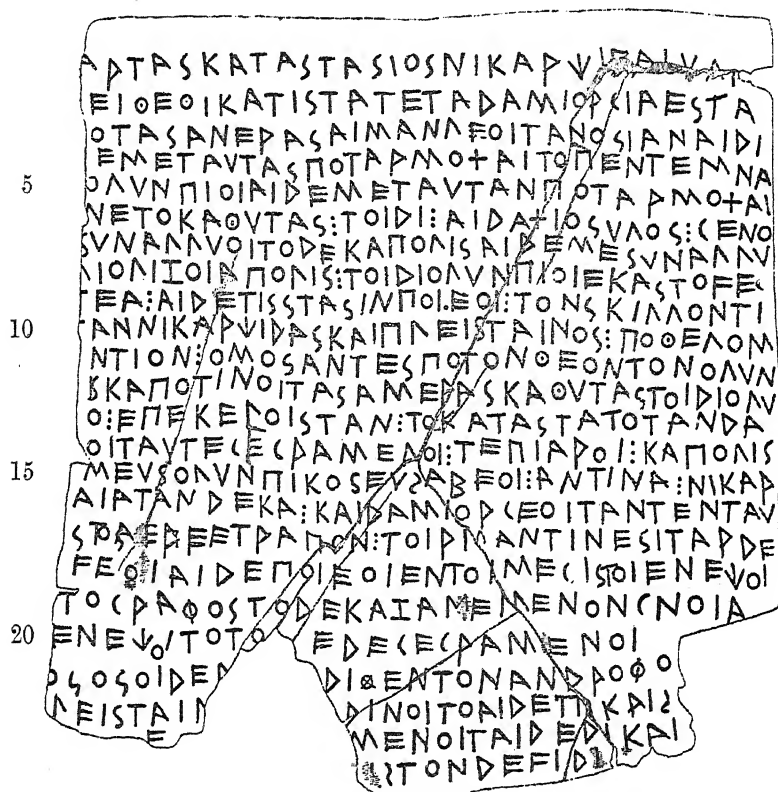 ΑΡΤΑSΚΑΤΑSΤΑSΙΟSΝΙΚΑΡΨ
ΕΙΘΕΟΙΚΑΤΙSΤΑΤΕΤΑΔΑΜΙΟΡCΙΑΕSΤΑ
ΟΤΑSΑΝΕΡΑSΑΙΜΑΝΛΕΟΙΤΑΝΟSΙΑΝΑΙΔΙ
ΕΜΕΤΑVΤΑSΠΟΤΑΡΜΟ+ΑΙΤΟΠΕΝΤΕΜΝΑ
5 ΟΛVΝΠΙΟΙΑΙΔΕΜΕΤΑVΤΑΝΠΟΤΑΡΜΟ+ΑΙ
ΝΕΤΟΚΑΘVΤΑS:ΤΟΙΔΙ:ΑΙΔΑ+ΙΟSVΛΟS:CΕΝΟ
SVΝΑΛΛVΟΙΤΟΔΕΚΑΠΟΛΙSΑΙΔΕΜΕSVΝΑΛΛV
ΛΙΟΛΙΞΟΙΑΠΟΛΙS:ΤΟΙΔΙΟΛVΝΠΙΟΙΕΚΑSΤΟFΕ
ΤΕΑ:ΑΙΔΕΤΙSSΤΑSΙΝΠΟΙ.ΕΟΙ:ΤΟΝSΚΙΛΛΟΝΤΙ
10 ΤΑΝΝΙΚΑΡΨΙΔΑSΚΑΙΠΛΕΙSΤΑΙΝΟS:ΠΟΘΕΛΟΜ
ΝΤΙΟΝ:ΟΜΟSΑΝΤΕSΠΟΤΟΝΘΕΟΝΤΟΝΟΛVΝ
ΚΑΠΟΤΙΝΟΙΤΑSΑΜΕΡΑSΚΑΘVΤΑSΤΟΙΔΙΟΛV
Ο:ΕΠΕΚΕΡΟΙSΤΑΝ:ΤΟΚΑΤΑSΤΑΤΟΤΑΝΔΑ
ΟΙΤΑVΤΕCΕCΡΑΜΕΝΟΙ:ΤΕΠΙΑΡΟΙ:ΚΑΠΟΛΙS
15 ΜΕVSΟΛVΝΠΙΚΟSΕVSΑΒΕΟΙ:ΑΝΤΙΝΑ:ΝΙΚΑΡ
ΑΙΑΤΑΝΔΕΚΑ:ΚΑΙΔΑΜΙΟΡCΕΟΙΤΑΝΤΕΝΤΑV
SΤΟΑΕΡΕΕΤΡΑΠΟΝ:ΤΟΙΔΙΑΝΤΙΝΕSΙΤΑΡΔΕ
FΕΟΙΑΙΔΕΠΟΙΕΟΙΕΝΤΟΙΜΕCΙSΤΟΙΕΝΕΨΟΙ
ΤΟCΡΑΦΟSΤΟΔΕΚΑΙΞΑΜΕΜΕΝΟΝCΝΟΙΑ
20 ΕΝΕΨΟΙΤΟΤΟ ΕΔΕCΕCΡΑΜΕΝΟΙ
ΟSΟSΟΙΔΕ ΔΙΘΕΝΤΟΝΑΝΔΡΟΦΟ
ΛΕΙSΤΑΙΝ ΔΙΝΟΙΤΟΑΙΔΕΤΙ ΚΑΙS
Ε ΜΕΝΟΙΤΑΙΔΕΔΙΚΑΙ
SΤΟΝΔΕFΙΔ